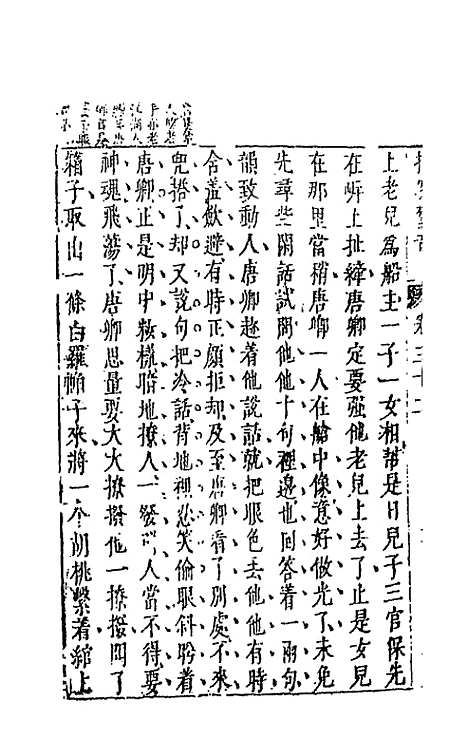 拍案驚奇 卷三十二
上老兒爲船主一子一女相幫是日兒子三官保先
在岸上扯縴唐卿定要強他老兒上去了止是女兒
在那里當稍唐卿一人在艙中像意好做光了未免
先尋些閒話試問他他十句裡邊也回答着一兩句
韻致動人唐卿趂着他說話就把眼色丟他他有時
含羞歛避有時正顏拒却及至唐卿看了別處不來
兜搭了却又說句把冷話背地裡忍笑偷眼斜盻着
唐卿正是明中粧樣暗地撩人一發叫人當不得要
神魂飛蕩了唐卿思量要大大撩撥他一撩撥開了
箱子取出一條白羅帕子來將一个胡桃繫着綰上